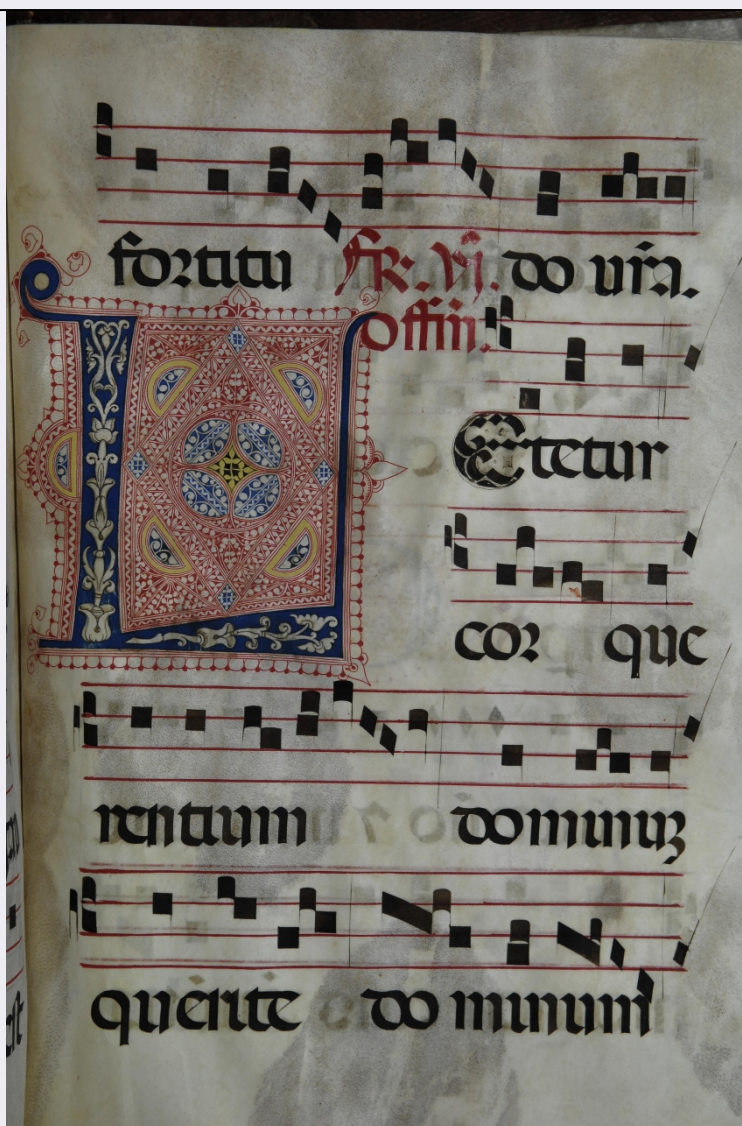 fortitu fr. vj. do vr̃a.
offm̃.
LEtetur
cor que
rentium dominuʒ
querite dominum